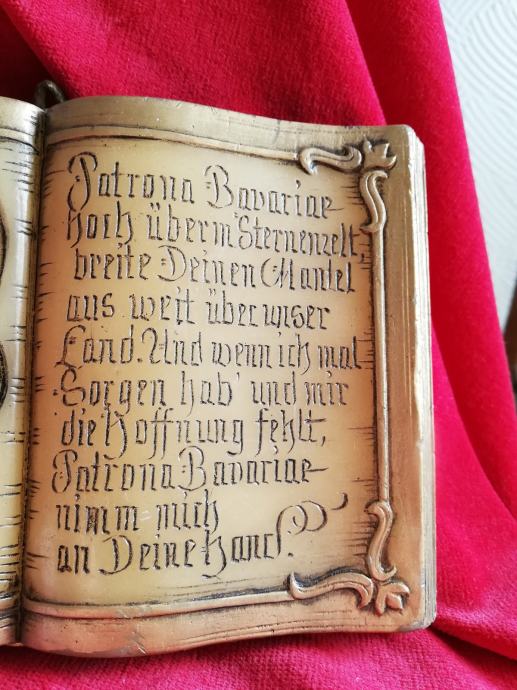 Patrona Bavariae
hoch überm Sternenzelt,
breite Deinen Mantel
aus weit über unser
Land. Und wenn ich mal
Sorgen hab' und mir
die Hoffnung fehlt,
Patrona Bavariae
nimm mich
an Deine Hand.